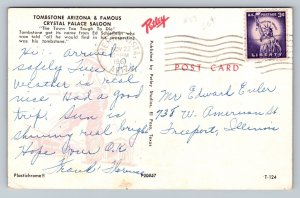 TOMBSTONE ARIZONA & FAMOUS
CRYSTAL PALACE SALOON
"The Town Too Tough To Die"
Tombstone got its name from Ed Schieffelin who
was told "all he would find in the
was his tombstone."
Hi. Arrived
safely Tues.
weather is real
nice. Had a good
trip. Sun is
shining real bright
Hope your O.K.
Frank
Plastichrome®
P30857
Published by Petley Studios, El Paso, Texas
Petley
POST CARD
U.S. POSTAGE 3¢
LIBERTY
Mr Edward Euler
738 W. American St
Freeport, Illinois
T-124